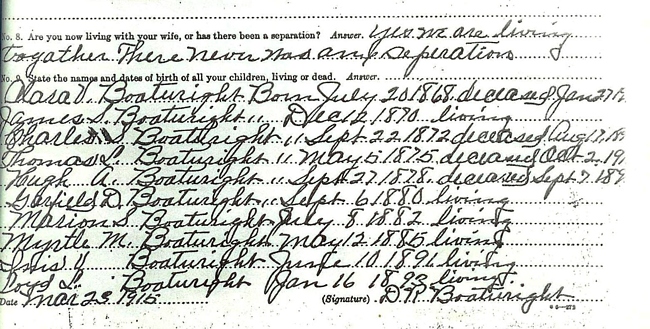 No. 8. Are you now living with your wife, or has there been a separation? Answer. yes we are living
togather There never was any seperation
No. 9. State the names and dates of birth of all your children, living or dead. Answer.
Clara V. Boatwright Born July 20 1868 deceased Jan 27
James S. Boatwright " Dec 12 1870 living
Charles Boatwright " Sept 22 1872 deceased Aug 17
Thomas L. Boatwright " May 5 1875 deceased Oct 2
Hugh A. Boatwright " Sept 27 1878 deceased Sept 7
Garfield D. Boatwright " Sept 6 1880 living
Marion S. Boatwright July 8 1882 living
Myrtle M. Boatwright May 12 1885 living
Boatwright June 10 1891 living
Boatwright Jan 16 living
Date Mar 23 1915 (Signature) Boatwright